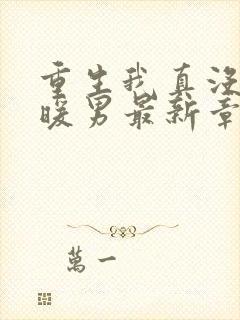 重生我真没
暖男最新章
萬一